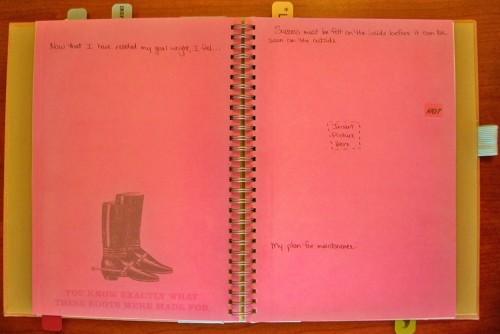 Now that I have reached my goal weight, I feel...
YOU KNOW EXACTLY WHAT
THESE BOOTS WERE MADE FOR.
Success must be felt on the inside before it can be
seen on the outside.
HOT
Insert
Picture
Here
My plan for maintenance